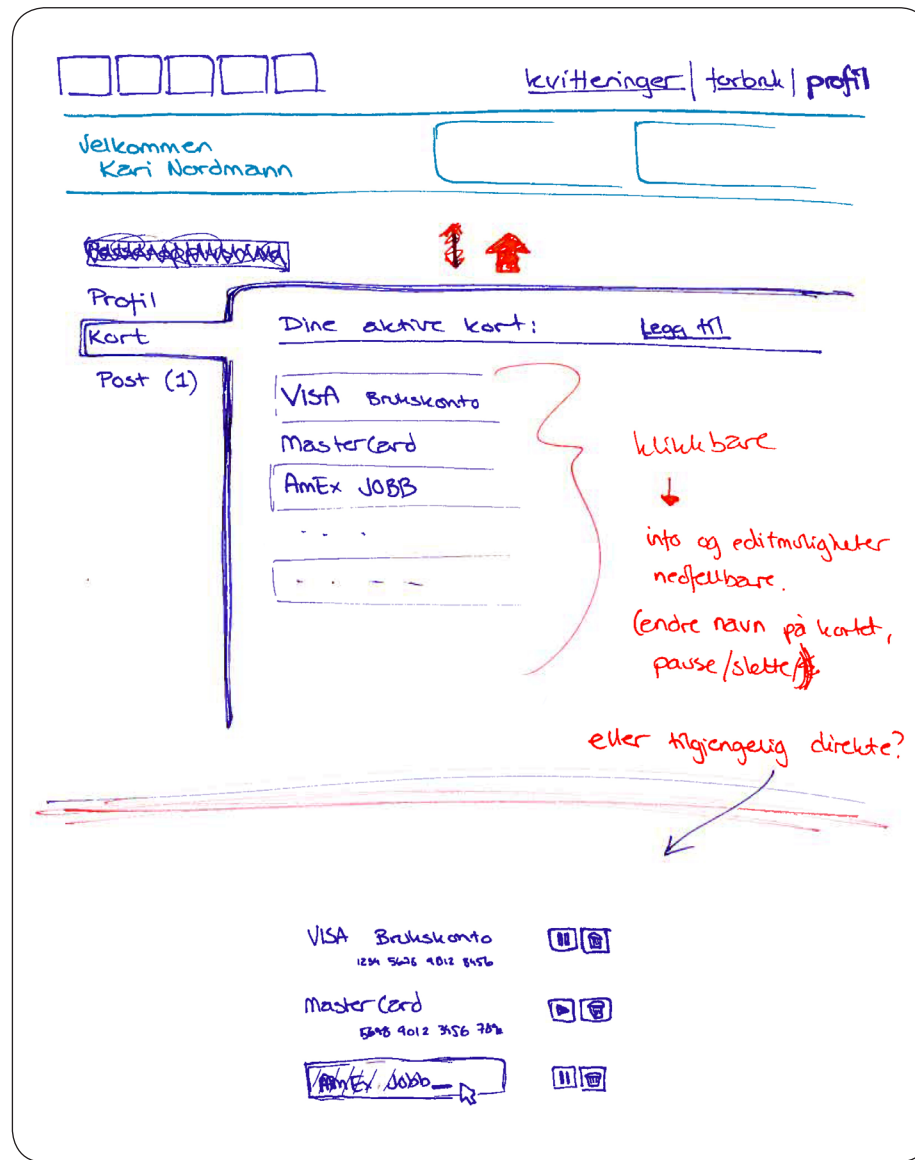 kvitteringer | forbruk | profil
Velkommen
Kari Nordmann
Profil
Kort
Post (1)
Dine aktive kort:
Legg til
VISA Brukskonto
MasterCard
AmEx JOBB
klikkbare
info og editmuligheter
nedfellbare.
(endre navn på kortet,
pause/slette/
eller tilgjengelig direkte?
VISA Brukskonto
1234 5678 9012 3456
MasterCard
5678 9012 3456 789
AmEx Jobb_